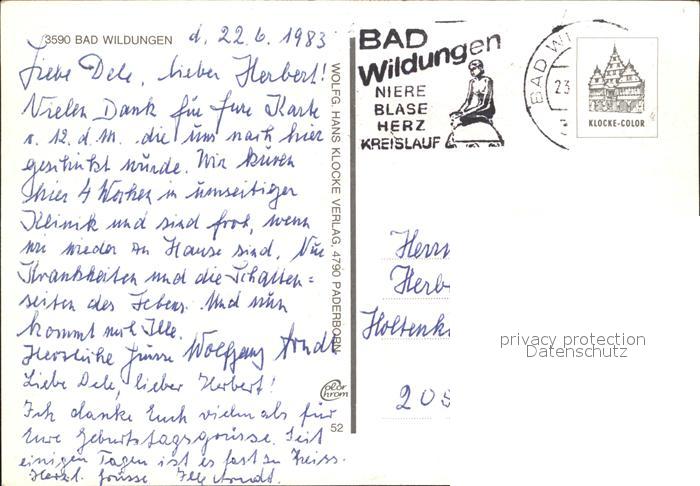 3590 BAD WILDUNGEN d. 22.6.1983
Liebe Dele, lieber Herbert!
Vielen Dank für Eure Karte
v. 12. d. M. die uns nach hier
geschickt wurde. Wir kuren
hier 4 Wochen in umseitiger
Klinik und sind froh, wenn
wir wieder zu Hause sind. Nur
Krankheiten und die Schatten=
seiten des Lebens. Und nun
kommt noch Ille.
Herzliche Grüsse Wolfgang Arndt
Liebe Dele, lieber Herbert!
Ich danke Euch vielmals für
Eure Geburtstagsgrüsse. Seit
einigen Tagen ist es fast zu heiss.
Herzl. Grüsse Ille Arndt.
WOLFG. HANS KLOCKE VERLAG, 4790 PADERBORN
color
chrom
52
BAD
Wildungen
NIERE
BLASE
HERZ
KREISLAUF
BAD WI
23
3
KLOCKE-COLOR
Herrn
Herb
Holtenk
205
privacy protection
Datenschutz